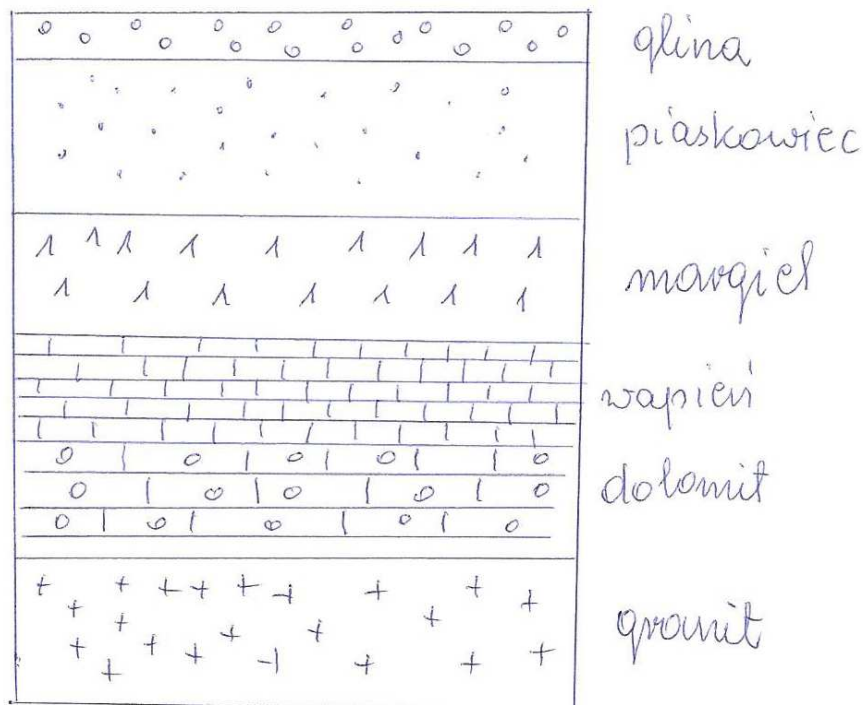 glina
piaskowiec
margiel
wapień
dolomit
granit